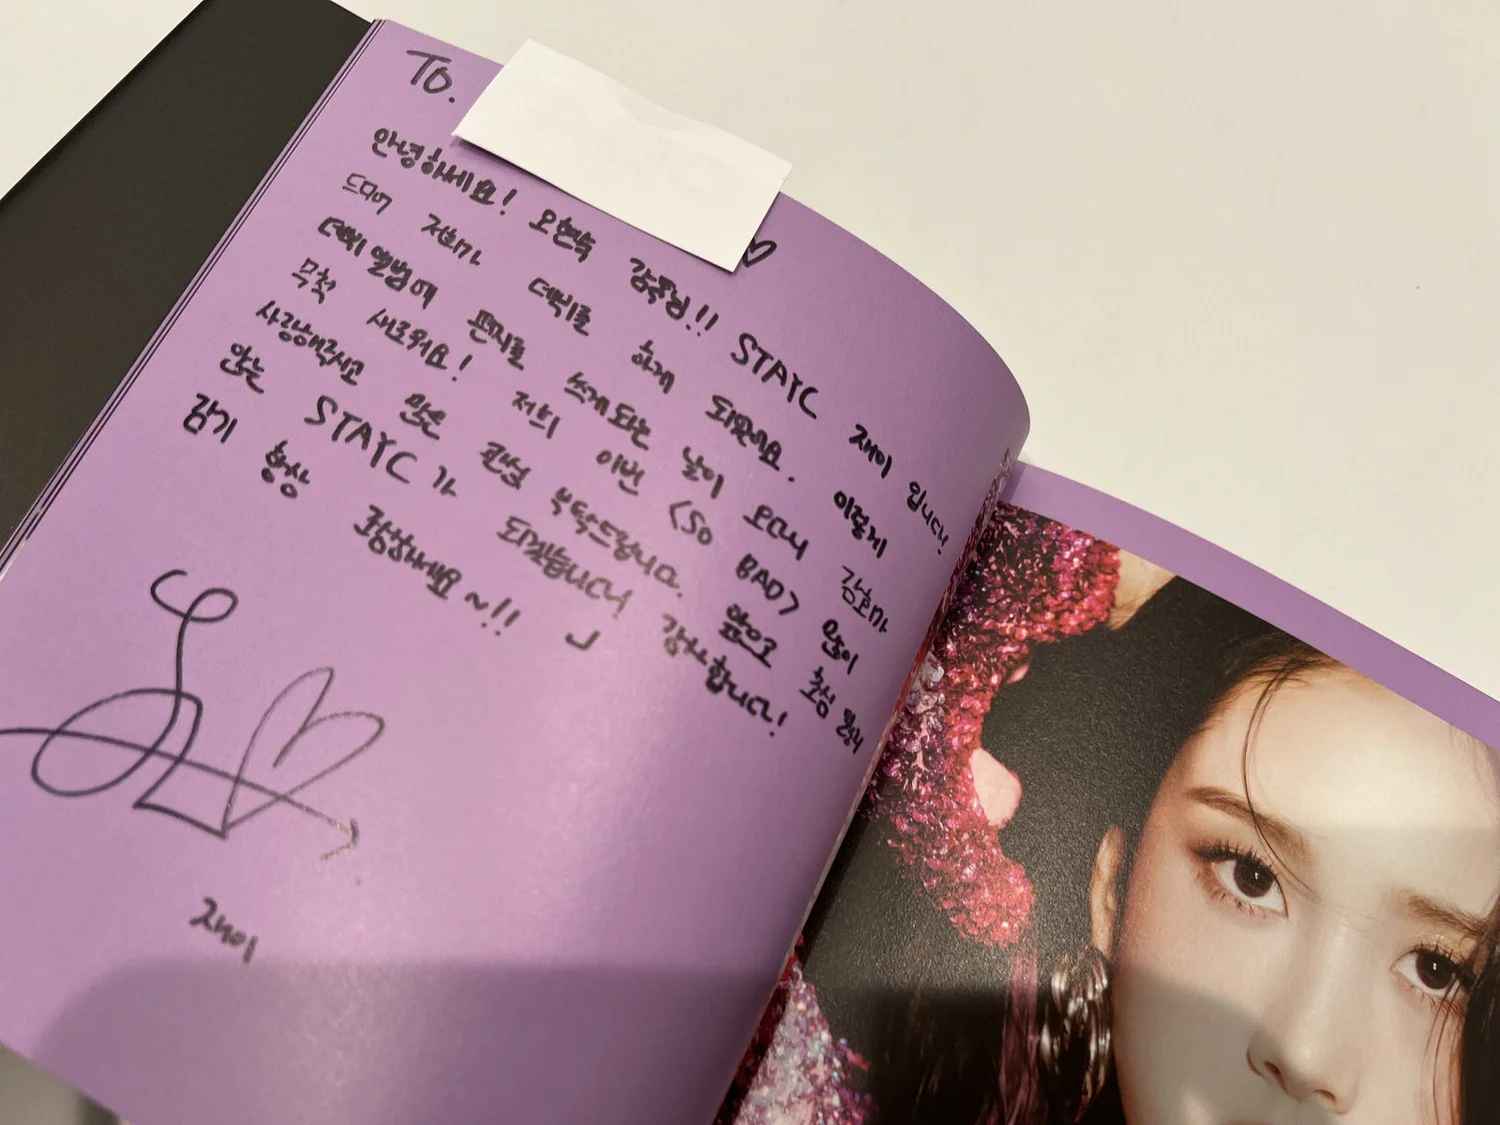 To. ♡
안녕하세요! 감독님!! STAYC 재이 입니다!
드디어 저희가 데뷔를 하게 되었어요. 이렇게
데뷔 앨범에 편지를 쓰게되는 날이 오다니 감회가
무척 새로워요! 저희 이번 <So BAD> 많이
사랑해주시고 많은 관심 부탁드립니다. 앞으로 초심 잃지
않는 STAYC가 되겠습니다! 감사합니다!
감기 항상 조심하세요~!!
재이